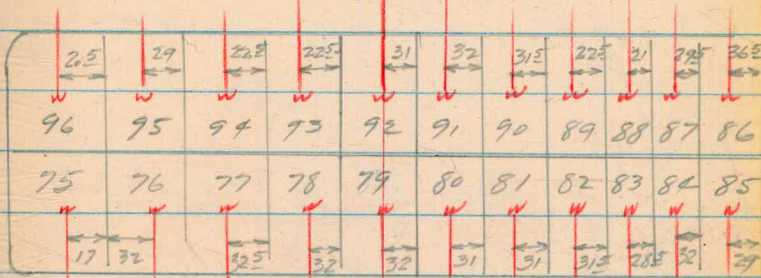 26⁵ 29 22⁵ 22⁵ 31 32 31⁵ 22⁵ 21 29⁵ 36⁵
w w w w w w w w w w w
96 95 94 93 92 91 90 89 88 87 86
75 76 77 78 79 80 81 82 83 84 85
w w w w w w w w w w w
17 32 32⁵ 32 32 31 31 31⁵ 28⁵ 32 29